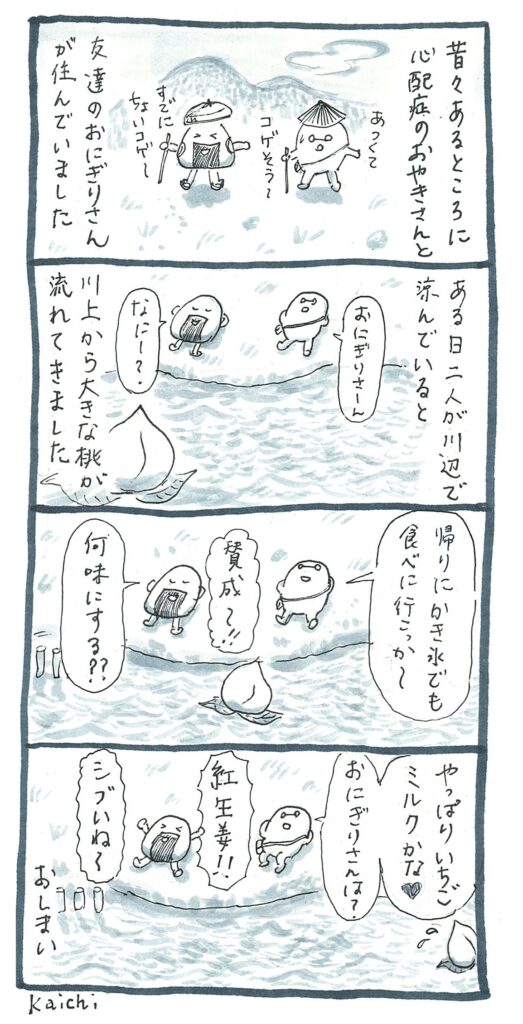 昔々あるところに
心配症のおやきさんと
あつくて
コゲそう〜
すでに
ちょいコゲ〜
友達のおにぎりさん
が住んでいました
ある日二人が川辺で
涼んでいると
おにぎりさーん
なにー？
川上から大きな桃が
流れてきました
帰りにかき氷でも
食べに行こっか〜
賛成〜!!
何味にする??
やっぱりいちご
ミルクかな♥
おにぎりさんは？
紅生姜!!
シブいね〜
おしまい
Kaichi